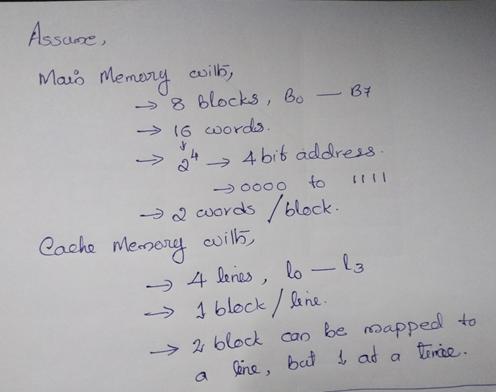 Assume,
Main Memory with,
→ 8 blocks, B0 — B7
→ 16 words.
↓
→ 2^4 → 4 bit address.
→ 0000 to 1111
→ 2 words / block.
Cache Memory with,
→ 4 lines, l0 — l3
→ 1 block / line.
→ 2 block can be mapped to
a line, but 1 at a time.